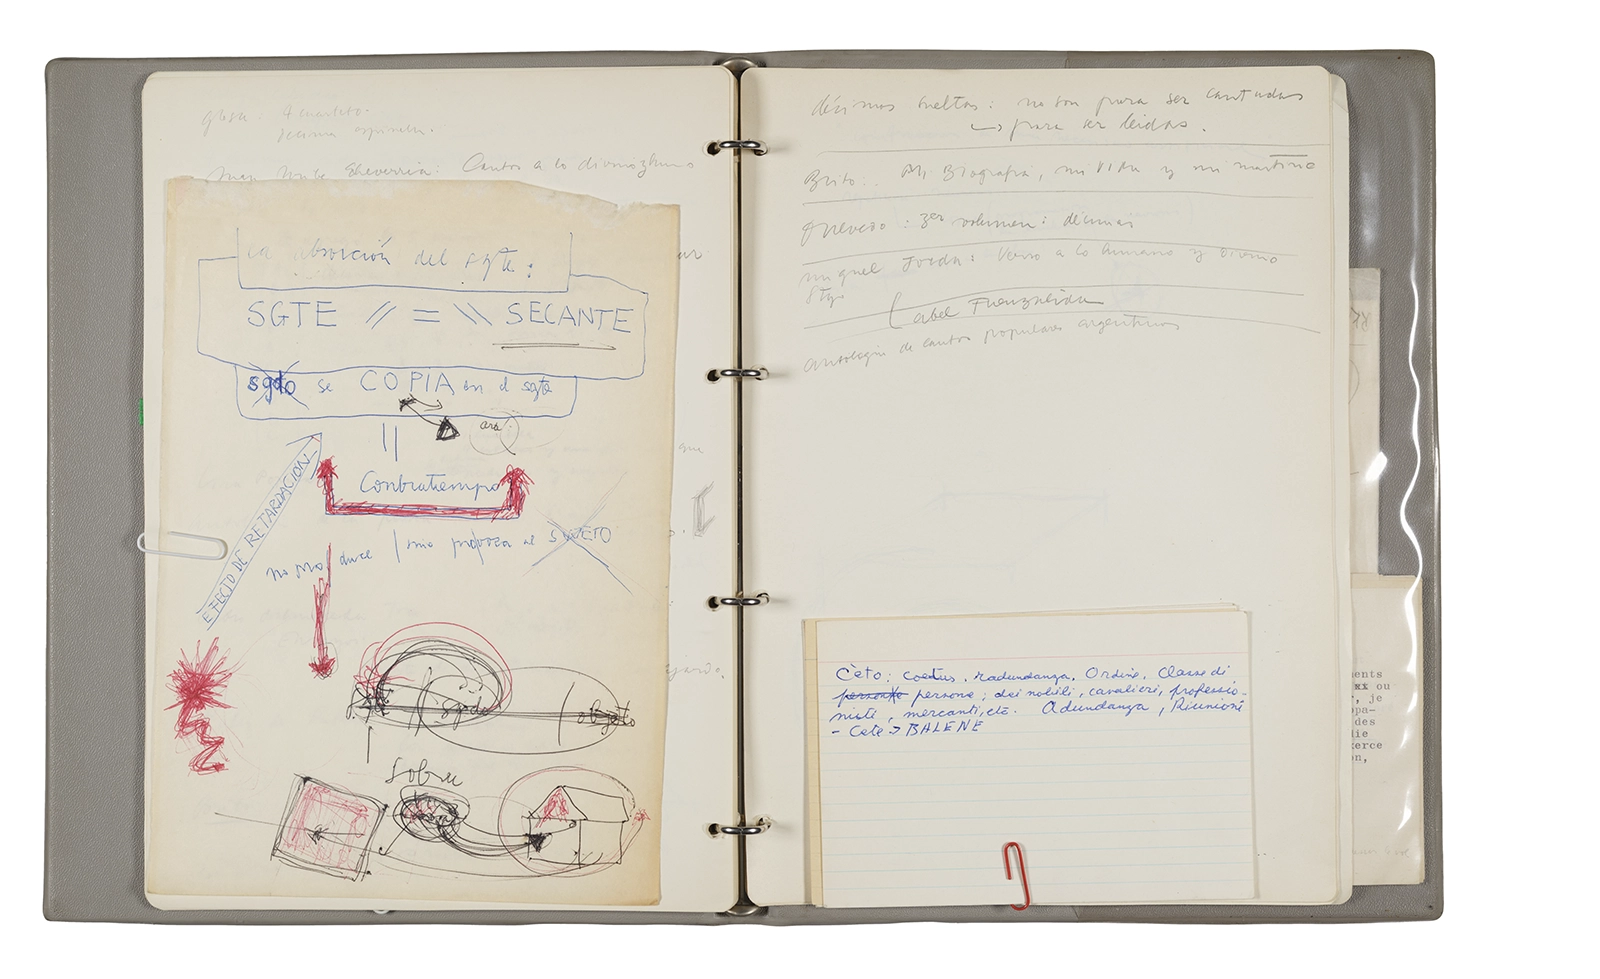 glosa: 4 cuarteto.
decima espinela.
Juan Uribe Echeverria: Cantos a lo divino y humano
La absorción del sgte:
SGTE // = \\ SECANTE
sgdo se COPIA en el sgte
Contratiempo
EFECTO DE RETARDACION
no produce / sino provoca al SUJETO
sgdo
objeto
Sobre
décimas sueltas: no son para ser cantadas
↳ para ser leídas.
Brito: Mi Biografia, mi vida y mi martirio
Quevedo: 3er volumen: décimas
Miguel Jordá: Verso a lo humano y divino
Stgo
antologia de cantos populares argentinos
Cèto: coetus, radundanza, Ordine, Classe di
persone; dei nobili, cavalieri, professio-
nisti, mercanti, etc. Adundanza, Riunione
- Cete → BALENE
ments
xx ou
, je
opa-
des
die
xerce
on,